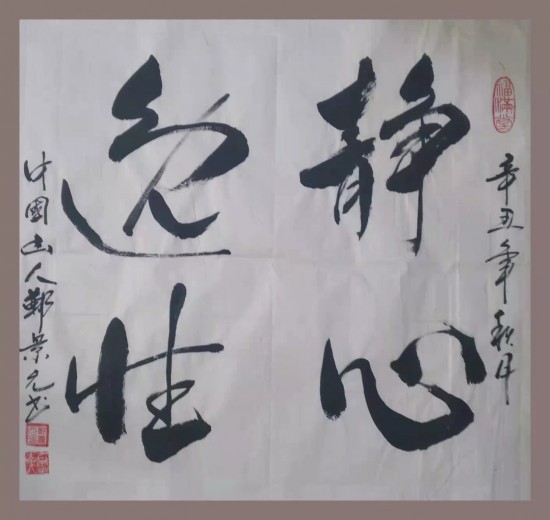 辛丑年秋月
静心
逸性
中国山人郑景元书